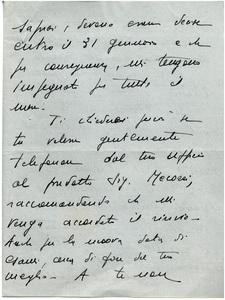 Sapessi, devono essere decise
entro il 31 gennaio e che
per conseguenza, mi tengono
impegnato per tutto il
mese.
Ti chiederei però se
tu volessi gentilmente
telefonare dal tuo Ufficio
al predetto Sig. Mecocci,
raccomandando che mi
venga accordato il rinvio.
Anche per la nuova data di
esami, cerca di fare del tuo
meglio. A te non